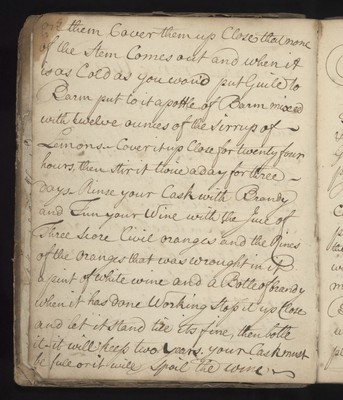 on them Cover them up Close that none
of the Stem Comes out and when it
is as Cold as you woud put Guile to
Barm put to it a pottle of Barm mixed
with twelve ounces of the Sirrup of
Lemons. Cover it up Close for twenty four
hours, then stir it twice a day for three
days. Rinse your Cask with Brandy
and Tun your Wine with the Juce of
Three Score Civil oranges and the Rines
of the oranges that was wrought in it
a pint of white wine and a Botle of brandy
when it has done Working Stop it up Close
and let it Stand till its fine, then botle
it it will keep two years. your Cask must
be full or it will Spoil the wine